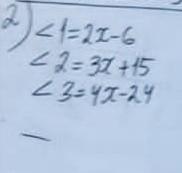 2) < 1 = 2x - 6
< 2 = 3x + 15
< 3 = 4x - 24